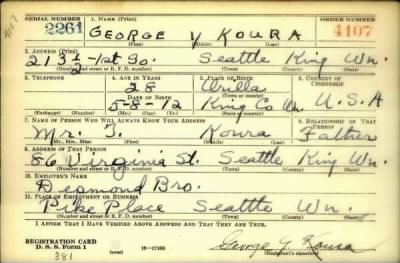 SERIAL NUMBER 1. NAME (Print) ORDER NUMBER
2261 GEORGE Y KOURA 4107
(First) (Middle) (Last)
2. ADDRESS (Print)
213½ - 1st So. Seattle King Wn.
(Number and street or R. F. D. number) (Town) (County) (State)
3. TELEPHONE 4. AGE IN YEARS 5. PLACE OF BIRTH 6. COUNTRY OF CITIZENSHIP
28 Orillia
DATE OF BIRTH (Town or county)
5-8-12 King Co Wn. U.S.A
(Mo.) (Day) (Yr.) (State or country)
7. NAME OF PERSON WHO WILL ALWAYS KNOW YOUR ADDRESS 8. RELATIONSHIP OF THAT PERSON
Mr. Koura Father
(Mr., Mrs., Miss) (First) (Middle) (Last)
9. ADDRESS OF THAT PERSON
86 Virginia St. Seattle King Wn.
(Number and street or R. F. D. number) (Town) (County) (State)
10. EMPLOYER'S NAME
Desmond Bro.
11. PLACE OF EMPLOYMENT OR BUSINESS
Pike Place Seattle Wn.
(Number and street or R. F. D. number) (Town) (County) (State)
I AFFIRM THAT I HAVE VERIFIED ABOVE ANSWERS AND THAT THEY ARE TRUE.
REGISTRATION CARD
D. S. S. Form 1 16-17105 George Y. Koura
381 (Registrant's signature)